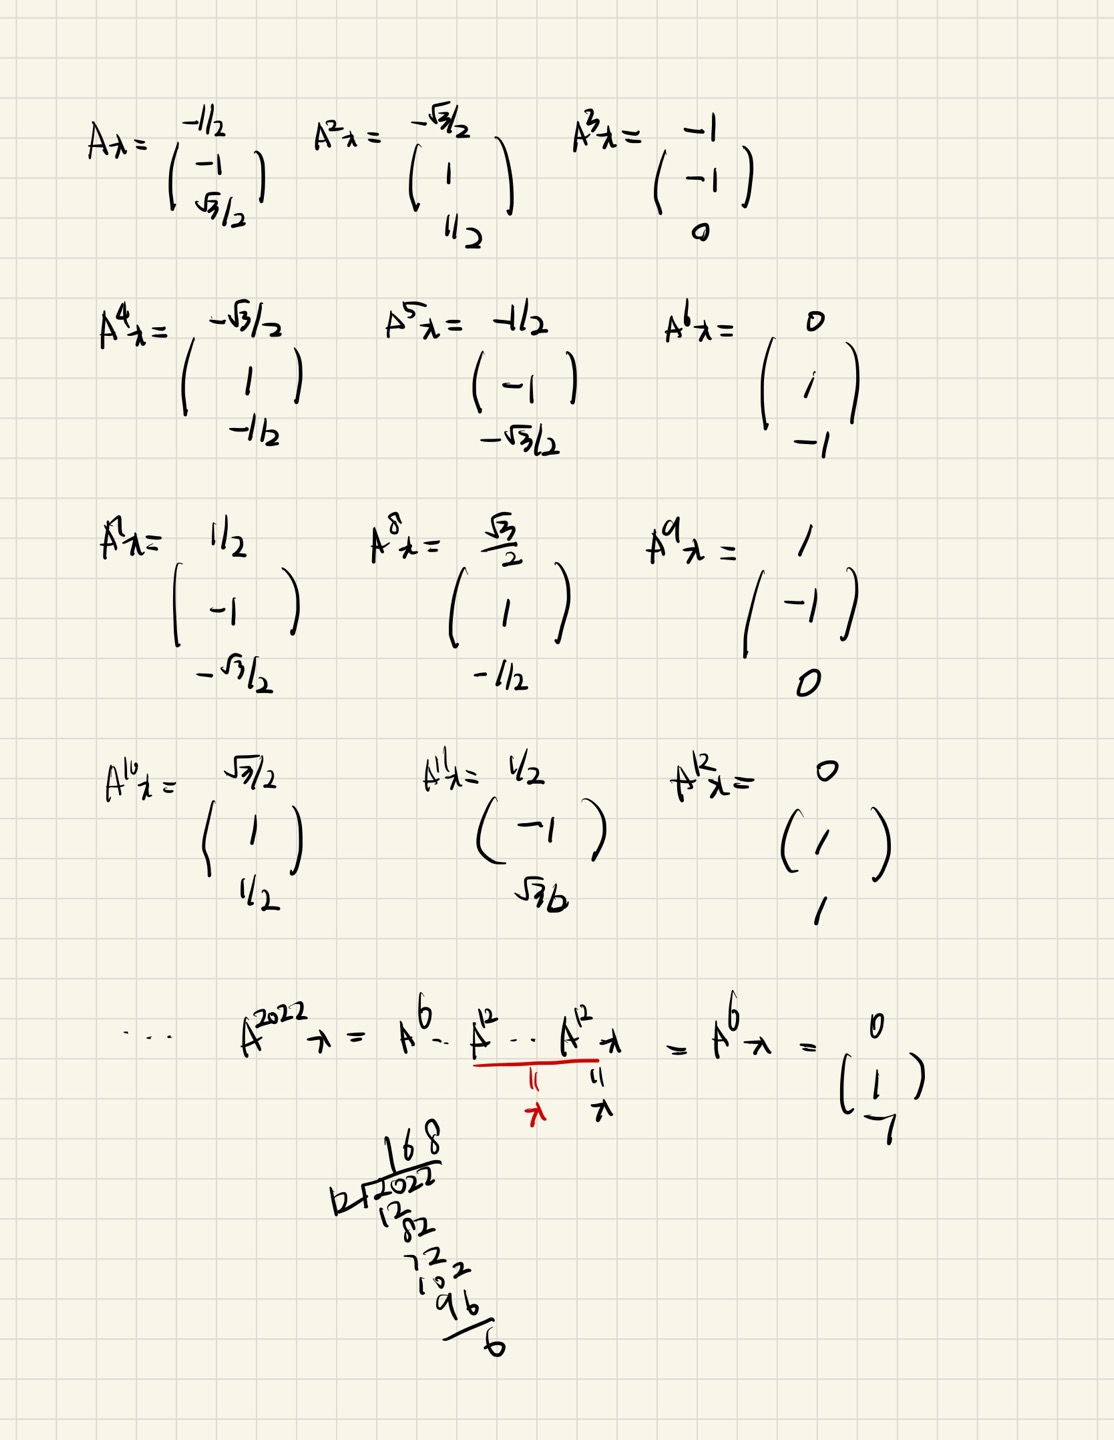 Ax = ( -1/2 -1 √3/2 ) A²x = ( -√3/2 1 1/2 ) A³x = ( -1 -1 0 )
A⁴x = ( -√3/2 1 -1/2 ) A⁵x = ( -1/2 -1 -√3/2 ) A⁶x = ( 0 1 -1 )
A⁷x = ( 1/2 -1 -√3/2 ) A⁸x = ( √3/2 1 -1/2 ) A⁹x = ( 1 -1 0 )
A¹⁰x = ( √3/2 1 1/2 ) A¹¹x = ( 1/2 -1 √3/2 ) A¹²x = ( 0 1 1 )
... A²⁰²²x = A⁶ ·· A¹² ·· A¹²x = A⁶x = ( 0 1 -1 )
" "
x x
168
12√2022
12
82
72
102
96
6